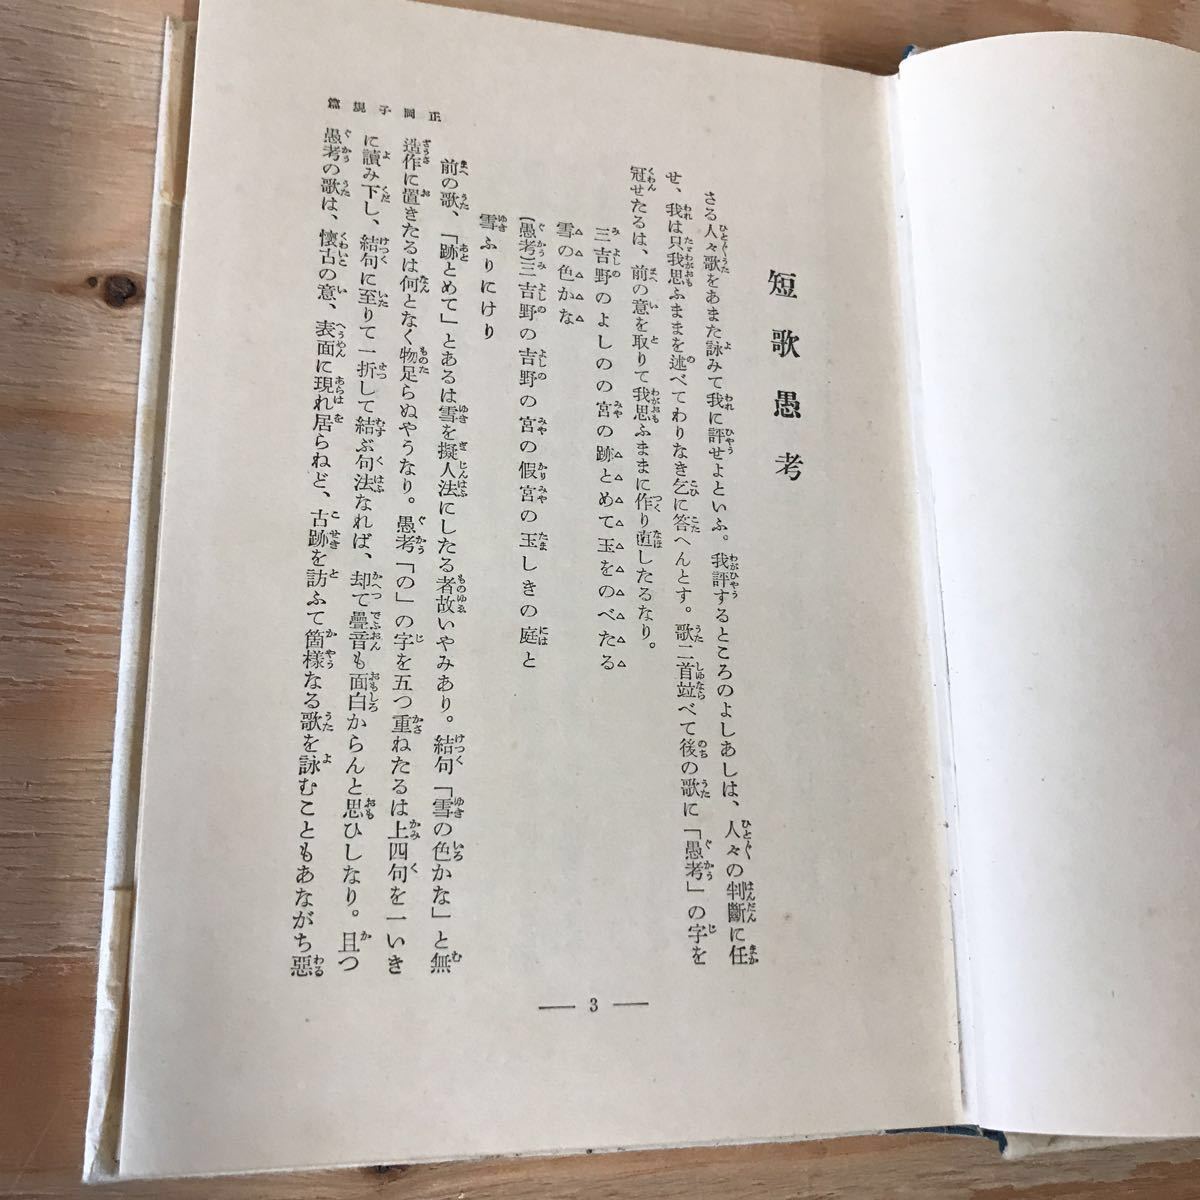 短歌愚考
さる人々歌をあまた詠みて我に評せよといふ。我評するところのよしあしは、人々の判斷に任
せ、我は只我思ふままを述べてわりなき乞に答へんとす。歌二首竝べて後の歌に「愚考」の字を
冠せたるは、前の意を取りて我思ふままに作り直したるなり。
三吉野のよしのの宮の跡とめて玉をのべたる
雪の色かな
(愚考)三吉野の吉野の宮の假宮の玉しきの庭と
雪ふりにけり
前の歌、「跡とめて」とあるは雪を擬人法にしたる者故いやみあり。結句「雪の色かな」と無
造作に置きたるは何となく物足らぬやうなり。愚考「の」の字を五つ重ねたるは上四句を一いき
に讀み下し、結句に至りて一折して結ぶ句法なれば、却て疊音も面白からんと思ひしなり。且つ
愚考の歌は、懷古の意、表面に現れ居らねど、古跡を訪ふて箇樣なる歌を詠むこともあながち惡
正岡子規篇
— 3 —